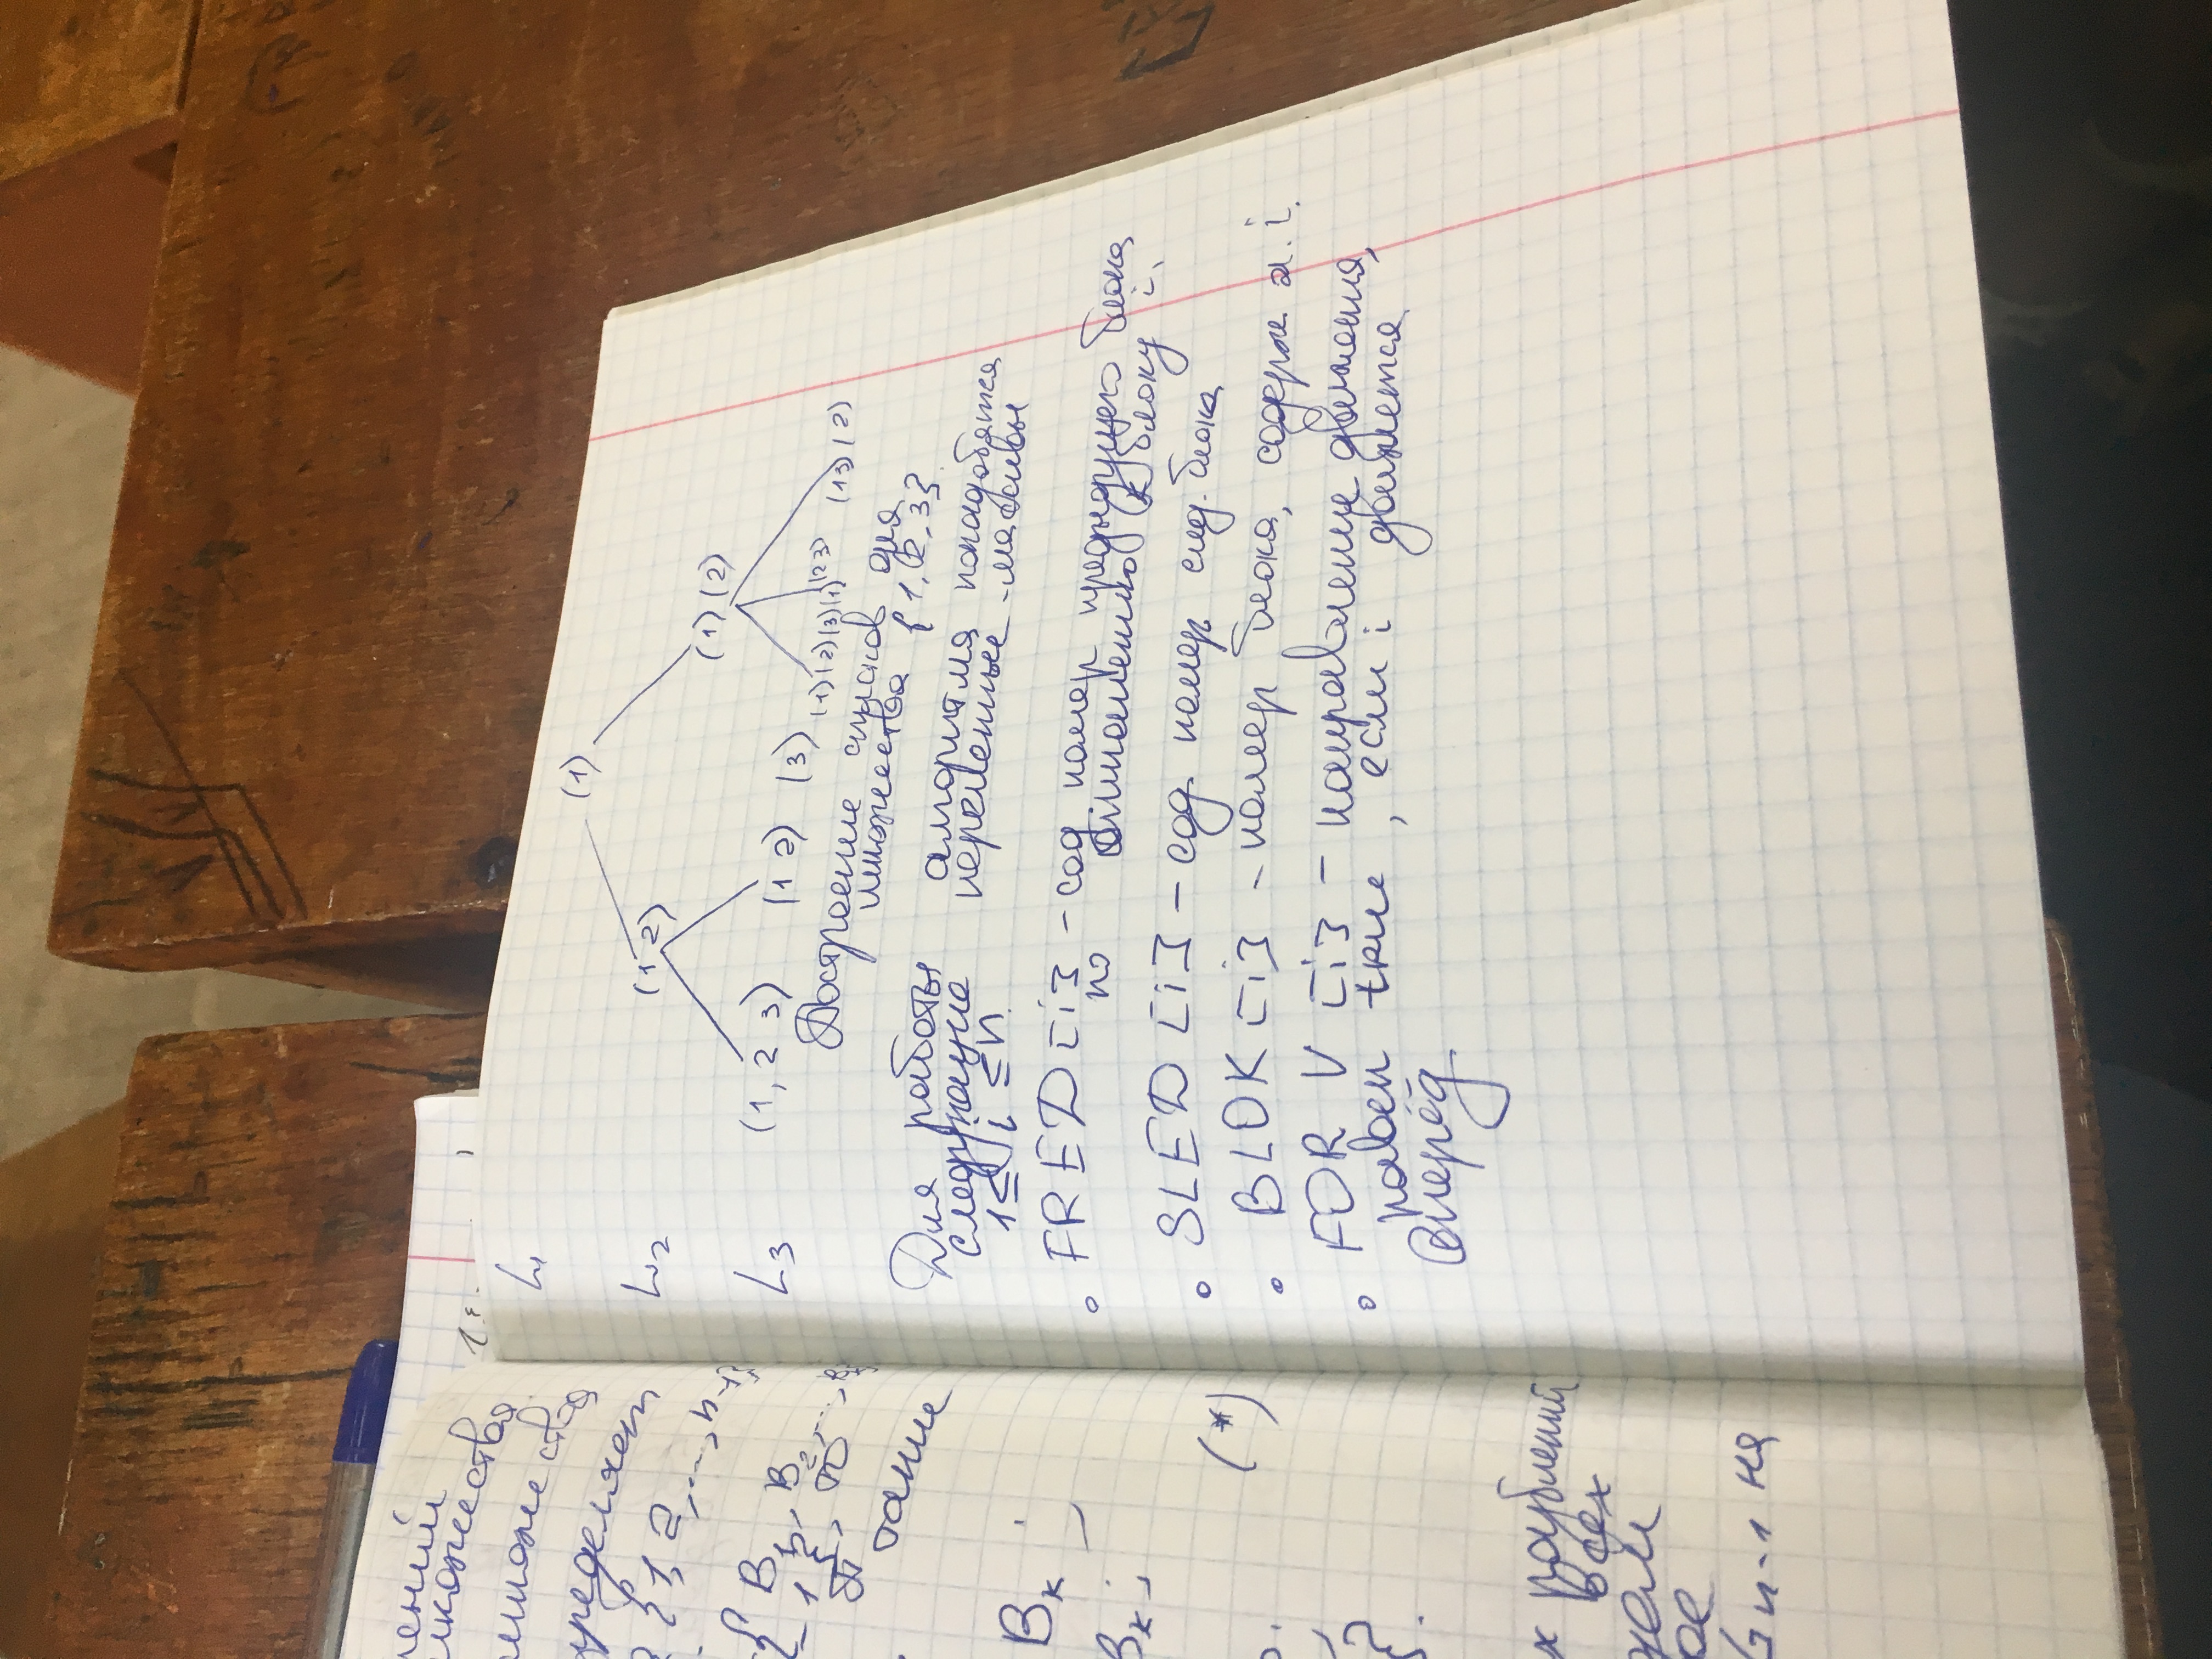 ножества
множества
пределяет
{1, 2, ..., n-1}
B₁, B₂, ...,
такие
Bₖ ;
Bₖ ;
(*)
х разбиений
всех
n-1 на
L₁
(1)
L₂
(1 2)
(1) (2)
L₃
(1, 2 3)
(1 2) (3)
(1) (2) (3)
(1) (2 3)
(13) (2)
Построение списков для
множества {1, 2, 3}.
Для работы алгоритма понадобятся
следующие переменные-массивы
1 ≤ i ≤ n.
• FRED [i] – сод. номер предыдущего блока
по отношению к блоку i.
• SLED [i] – сод. номер след. блока
• BLOK [i] – номер блока, содерж. эл. i.
• FOR V [i] – направление движения,
равен true, если i движется
вперёд